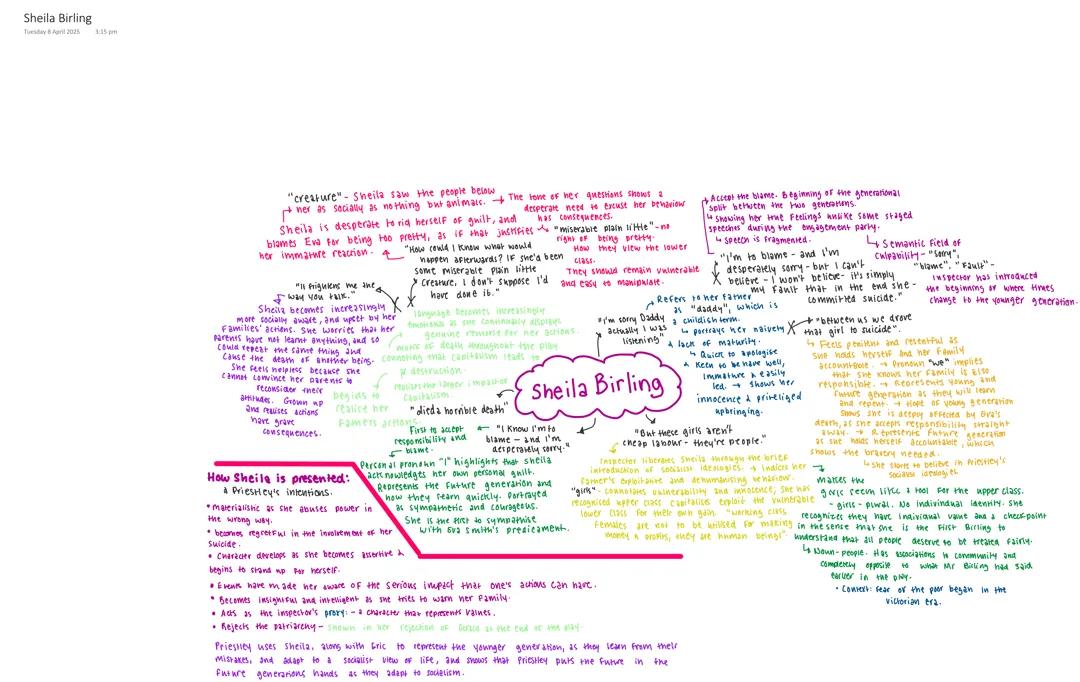 Sheila Birling
Tuesday 8 April 2025 3:15 pm
"creature" - Sheila saw the people below
her as socially as nothing but animals.
Sheila is desperate to rid herself of guilt, and
blames Eva for being too pretty, as if that justifies
her immature reaction.
The tone of her questions shows a
desperate need to excuse her behaviour
has consequences.
"miserable plain little" - no
right of being pretty.
How they view the lower
class.
They should remain vulnerable
and easy to manipulate.
"How could I know what would
happen afterwards? If she'd been
some miserable plain little
creature, I don't suppose I'd
have done it."
Accept the blame. Beginning of the generational
split between the two generations.
showing her true feelings unlike some staged
speeches during the engagement party.
speech is fragmented.
Semantic field of
culpability - "sorry",
"blame", "fault" -
Inspector has introduced
the beginning or where times
change to the younger generation.
"I'm to blame - and I'm
desperately sorry - but I can't
believe - I won't believe - it's simply
my fault that in the end she -
committed suicide."
"It frightens me the
way you talk."
Sheila becomes increasingly
more socially aware, and upset by her
families' actions. She worries that her
parents have not learnt anything, and so
could repeat the same thing and
cause the death of another being.
She feels helpless because she
cannot convince her parents to
reconsider their
attitudes. Grown up
and realises actions
have grave
consequences.
language becomes increasingly
emotional as she continually displays
genuine remorse for her actions.
motif of death throughout the play
connoting that capitalism leads to
destruction.
realise the larger impact of
capitalism.
begins to
realise her
family's actions.
"died a horrible death"
"I'm sorry Daddy
actually I was
listening"
Refers to her father
as "daddy", which is
a childish term.
portrays her naivety
& lack of maturity.
Quick to apologise
& keen to behave well,
immature & easily
led. → shows her
innocence & privileged
upbringing.
"between us we drove
that girl to suicide".
Feels penitent and resentful as
she holds herself and her family
accountable. → Pronoun "we" implies
that she knows her family is also
responsible. → Represents young and
future generation as they will learn
and repent. → Hope of young generation
shows she is deeply affected by Eva's
death, as she accepts responsibility straight
away. → Represents future generation
as she holds herself accountable, which
shows the bravery needed.
She starts to believe in Priestley's
socialist ideologies.
Sheila Birling
First to accept
responsibility and
blame.
"I know I'm to
blame - and I'm
desperately sorry."
Personal pronoun "I" highlights that Sheila
acknowledges her own personal guilt.
Represents the future generation and
how they learn quickly. Portrayed
as sympathetic and courageous.
She is the first to sympathise
with Eva Smith's predicament.
"But these girls aren't
cheap labour - they're people."
Inspector liberates Sheila through the brief
introduction of socialist ideologies. → Indices her
father's exploitative and dehumanising behaviour.
"girls" - connotates vulnerability and innocence; she has
recognised upper class capitalises exploit the vulnerable
lower class for their own gain. "working class
females are not to be utilised for making
money & profits, they are human beings"
makes the
girls seem like a tool for the upper class.
- girls - plural. No individual identity. She
recognizes they have individual value and a checkpoint
in the sense that she is the first Birling to
understand that all people deserve to be treated fairly.
Noun - people. Has associations in community and
completely opposite to what Mr Birling had said
earlier in the play.
• Context: fear of the poor began in the
victorian era.
How Sheila is presented:
& Priestley's intentions.
• Materialistic as she abuses power in
the wrong way.
• becomes regretful in the involvement of her
suicide.
• Character develops as she becomes assertive &
begins to stand up for herself.
• Events have made her aware of the serious impact that one's actions can have.
• Becomes insightful and intelligent as she tries to warn her family.
• Acts as the inspector's proxy: - a character that represents values.
• Rejects the patriarchy - shown in her rejection of Gerald at the end of the play.
Priestley uses Sheila, along with Eric to represent the younger generation, as they learn from their
mistakes, and adapt to a socialist view of life, and shows that Priestley puts the future in the
future generations hands as they adapt to socialism.